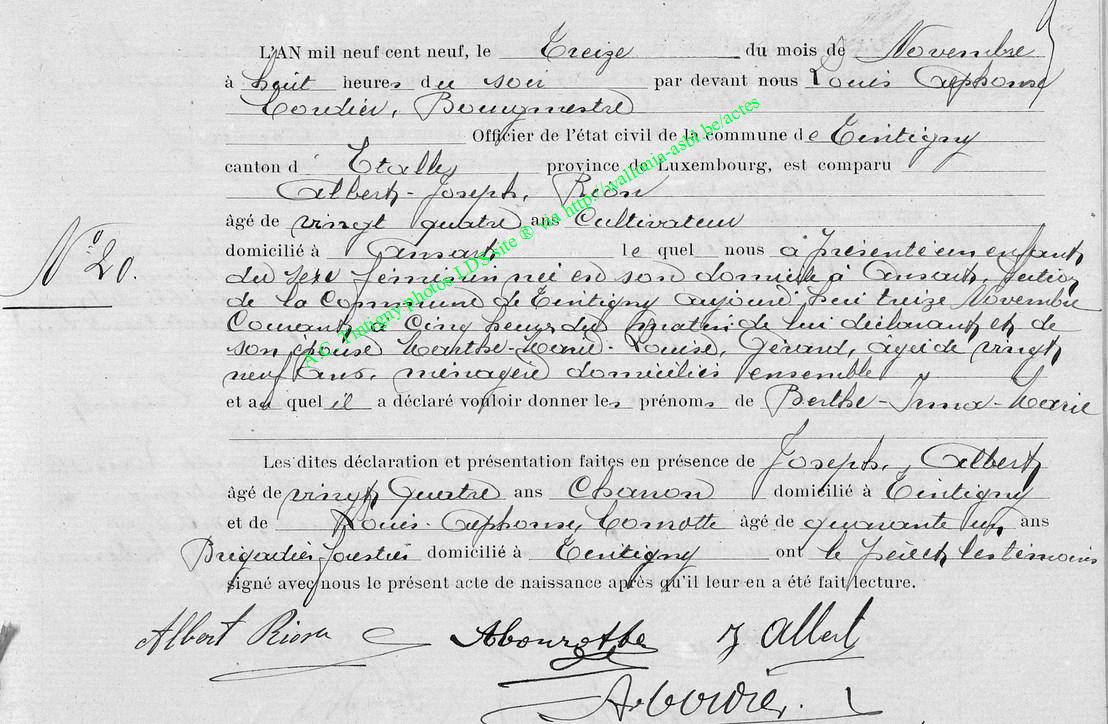 L'AN mil neuf cent neuf, le Treize du mois de Novembre
à huit heures du soir par devant nous Louis Alphonse
Cordier, Bourgmestre
Officier de l'état civil de la commune de Tintigny
canton d' Etalle, province de Luxembourg, est comparu
Albert-Joseph, Rion
âgé de vingt quatre ans Cultivateur
domicilié à Ansart le quel nous a présenté un enfant
N° 20.
du sexe féminin né en son domicile à Ansart, section
de la Commune de Tintigny aujourd'hui treize Novembre
Courant, à Cinq heures du matin de lui déclarant et de
son épouse Marthe-Marie-Louise, Gérard, âgée de vingt
neuf ans, ménagère domiciliés ensemble
et au quel il a déclaré vouloir donner les prénoms de Berthe-Irma-Marie
Les dites déclaration et présentation faites en présence de Joseph, Albert
âgé de vingt quatre ans domicilié à Tintigny
et de Louis-Alphonse, âgé de quarante un ans
Brigadier forestier domicilié à Tintigny ont le père et les témoins
signé avec nous le présent acte de naissance après qu'il leur en a été fait lecture.
Albert Rion J Albert
A. Cordier.
A.G. Tintigny photos LDS site ® via http://wallonia-asbl.be/actes